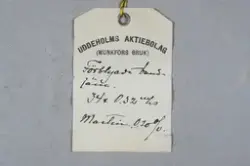 UDDEHOLMS AKTIEBOLAG
(MUNKFORS BRUK)
Förblyade band-
järn.
34 x 0.32 m/s
Martin 0.30%